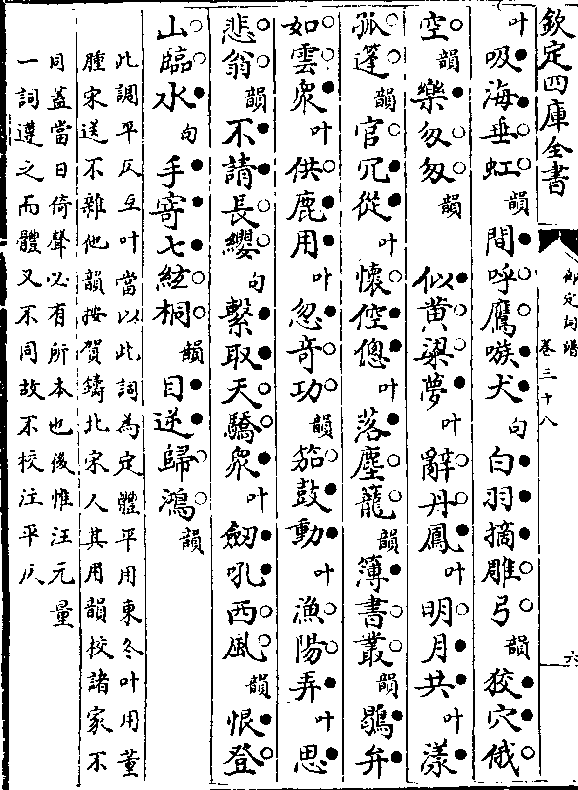 欽定四庫全書
御定詞譜
卷三十八
六
叶吸海垂虹韻間呼鷹嗾犬句白羽摘雕弓韻狡穴俄
空韻樂匆匆韻　似黄粱夢叶辭丹鳳叶明月共叶漾
孤篷韻官冗從叶懷倥偬叶落塵籠韻簿書叢韻鶡弁
如雲衆叶供麄用叶忽奇功韻笳鼓動叶漁陽弄叶思
悲翁韻不請長纓句繫取天驕衆叶劒吼西風韻恨登
山臨水句手寄七絃桐韻目送歸鴻韻
此調平仄互叶當以此詞為定體平用東冬叶用董
腫宋送不雜他韻按賀鑄北宋人其用韻校諸家不
同蓋當日倚聲必有所本也後惟汪元量
一詞遵之而體又不同故不校注平仄